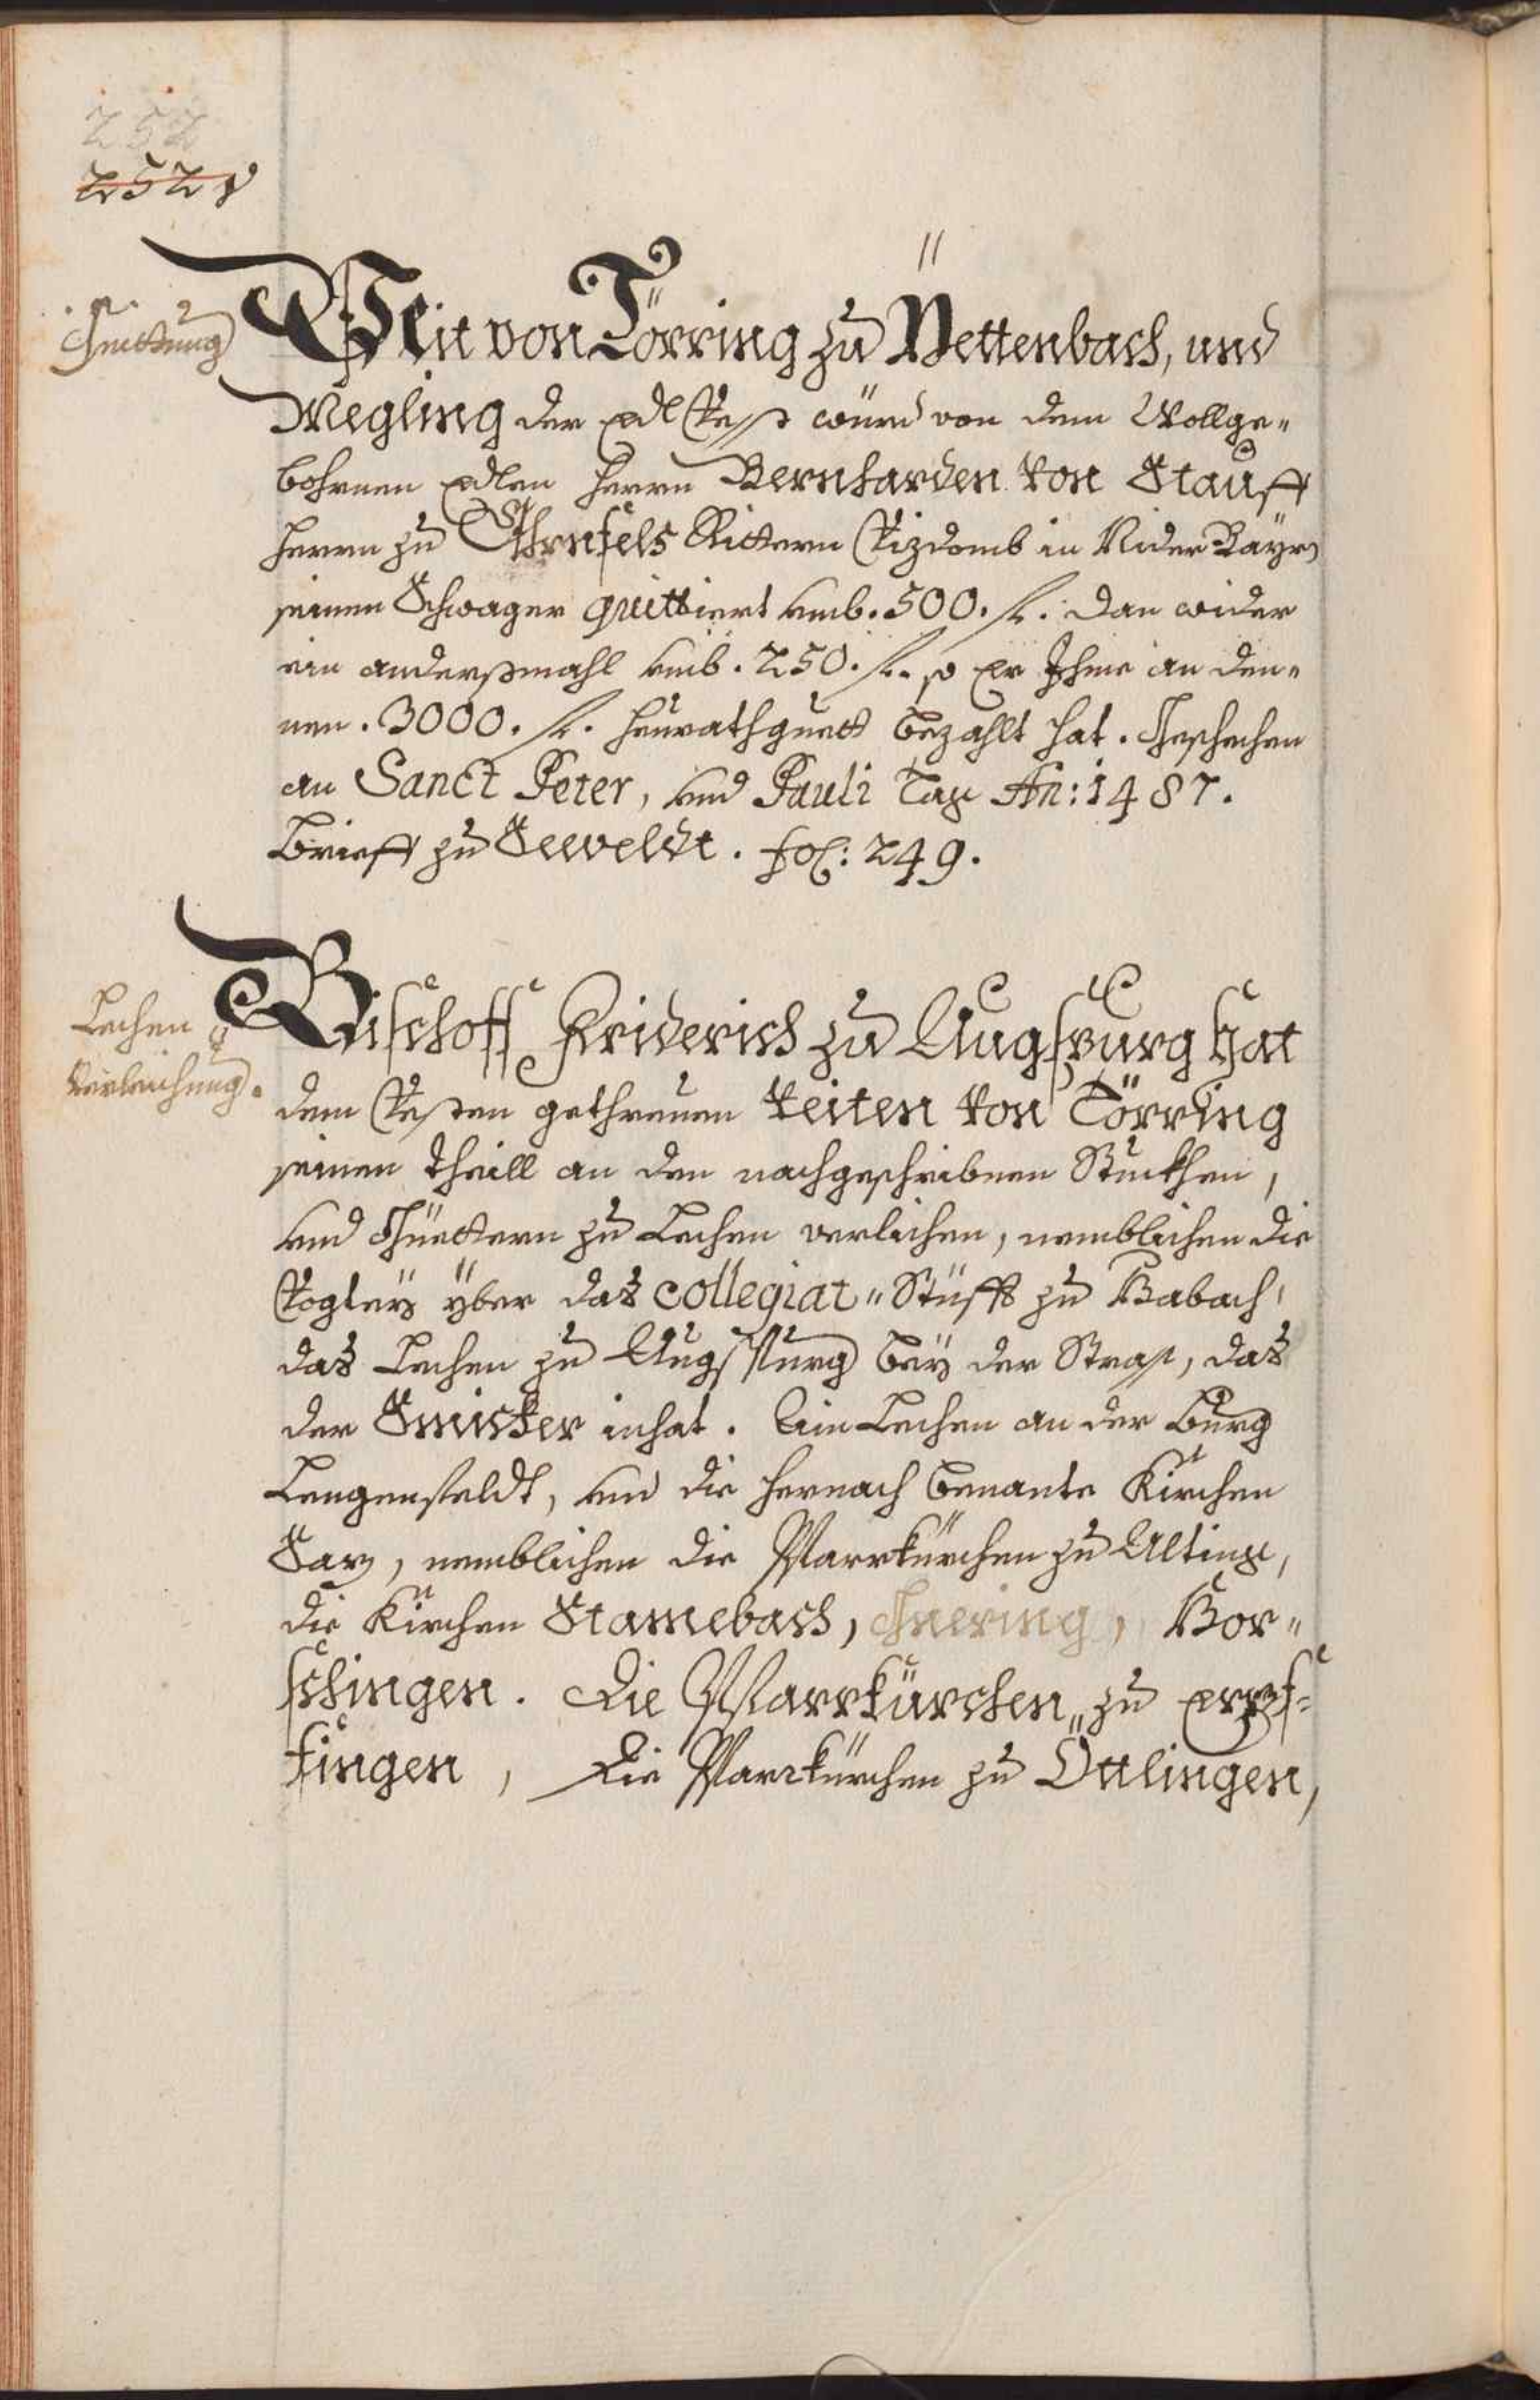 252
252v
Quittung
Veit von Törring zu Pettenbach, und
Megling der Edl Vesst würd von dem Wollge„
bohrnen Edlen Herrn Bernharden von Stauff
Herrn zu Ehrnfels Rittern Vizdomb in Nider Bayrn
seinen Schwager quittiert vmb. 500. fl. dan wider
ein anderßmahl vmb. 250. fl. so Er Ihme an den„
nen. 3000. fl. Heurathguett bezahlt hat. Geschechen
an Sanct Peter, vnd Pauli tag An: 1487.
Brieff zu Seeveldt. fol: 249.
Lechen
Verleichung.
Bischoff Friderich zu Augspurg hat
dem Vesten gethreuen Veiten von Törring
seinen theill an den nachgeschribnen Stuckhen,
vnd Güettern zu Lechen verlichen, nemblichen die
Vogteÿ yber das Collegiat„Stüfft zu Habach,
das Lechen zu Augspurg beÿ der Strass, das
der inhat. Ein Lechen an der Burg
Lengenfeldt, vnd die hernach benante Kirchen
Säz, nemblichen die Pfarrkürchen zu Alting,
die Kirchen Stamebach, Guering, Hor„
schingen. Die Pfarrkürchen zu
fingen, die Pfarrkürchen zu Öttlingen,